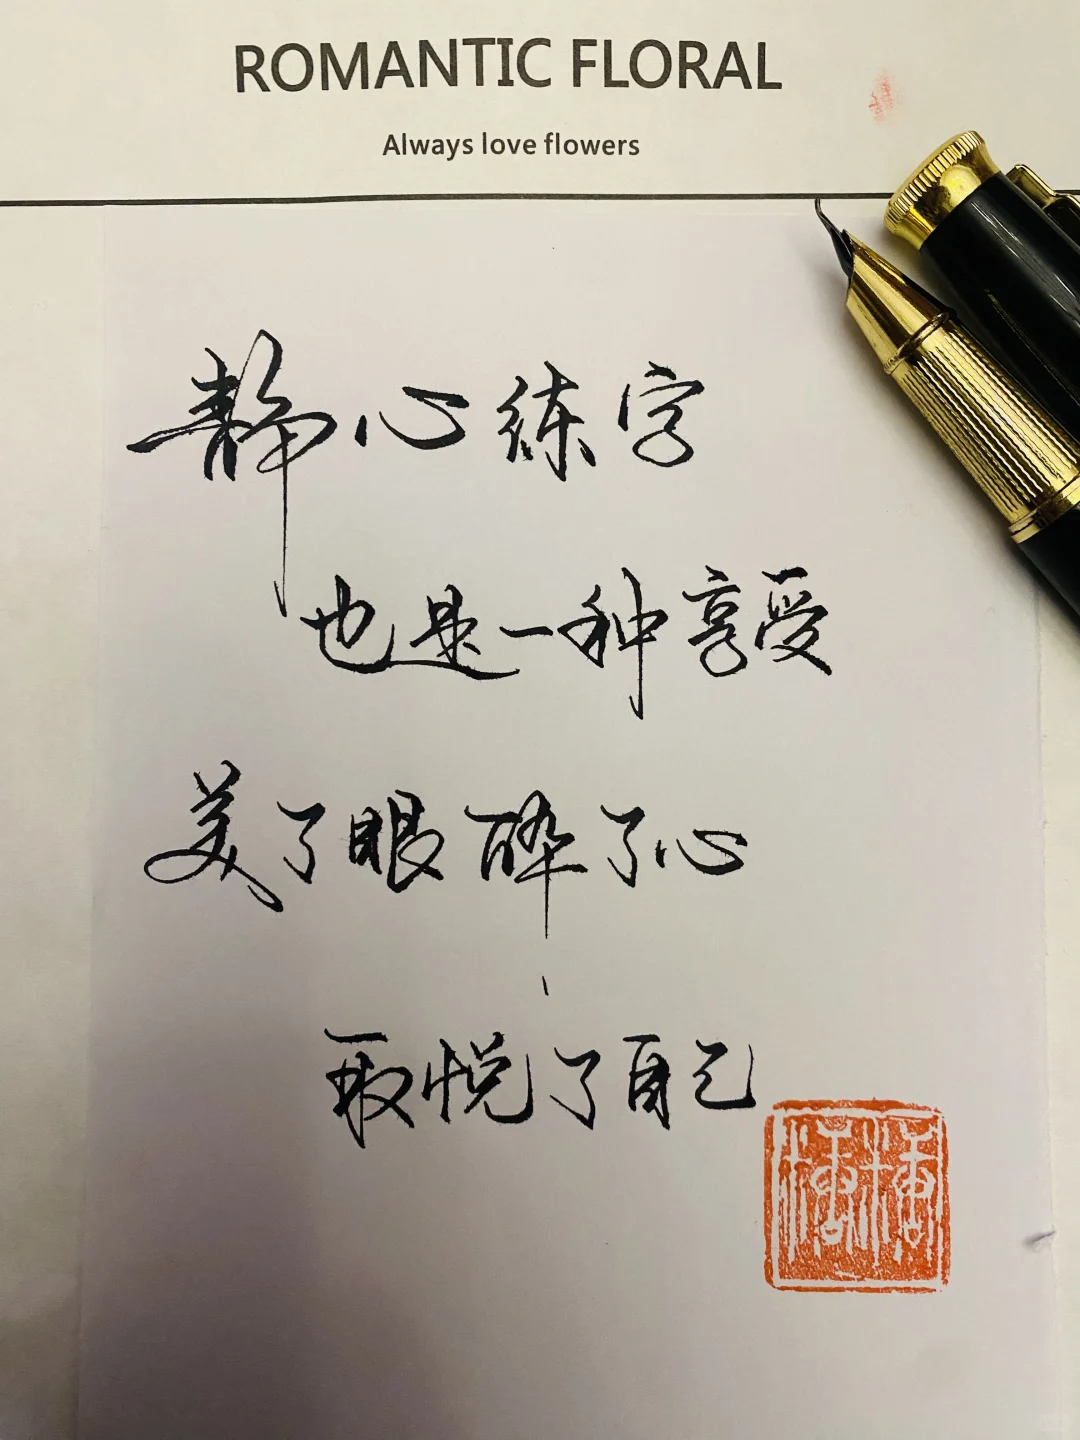 ROMANTIC FLORAL
Always love flowers
静心练字
也是一种享受
美了眼醉了心
取悦了自己